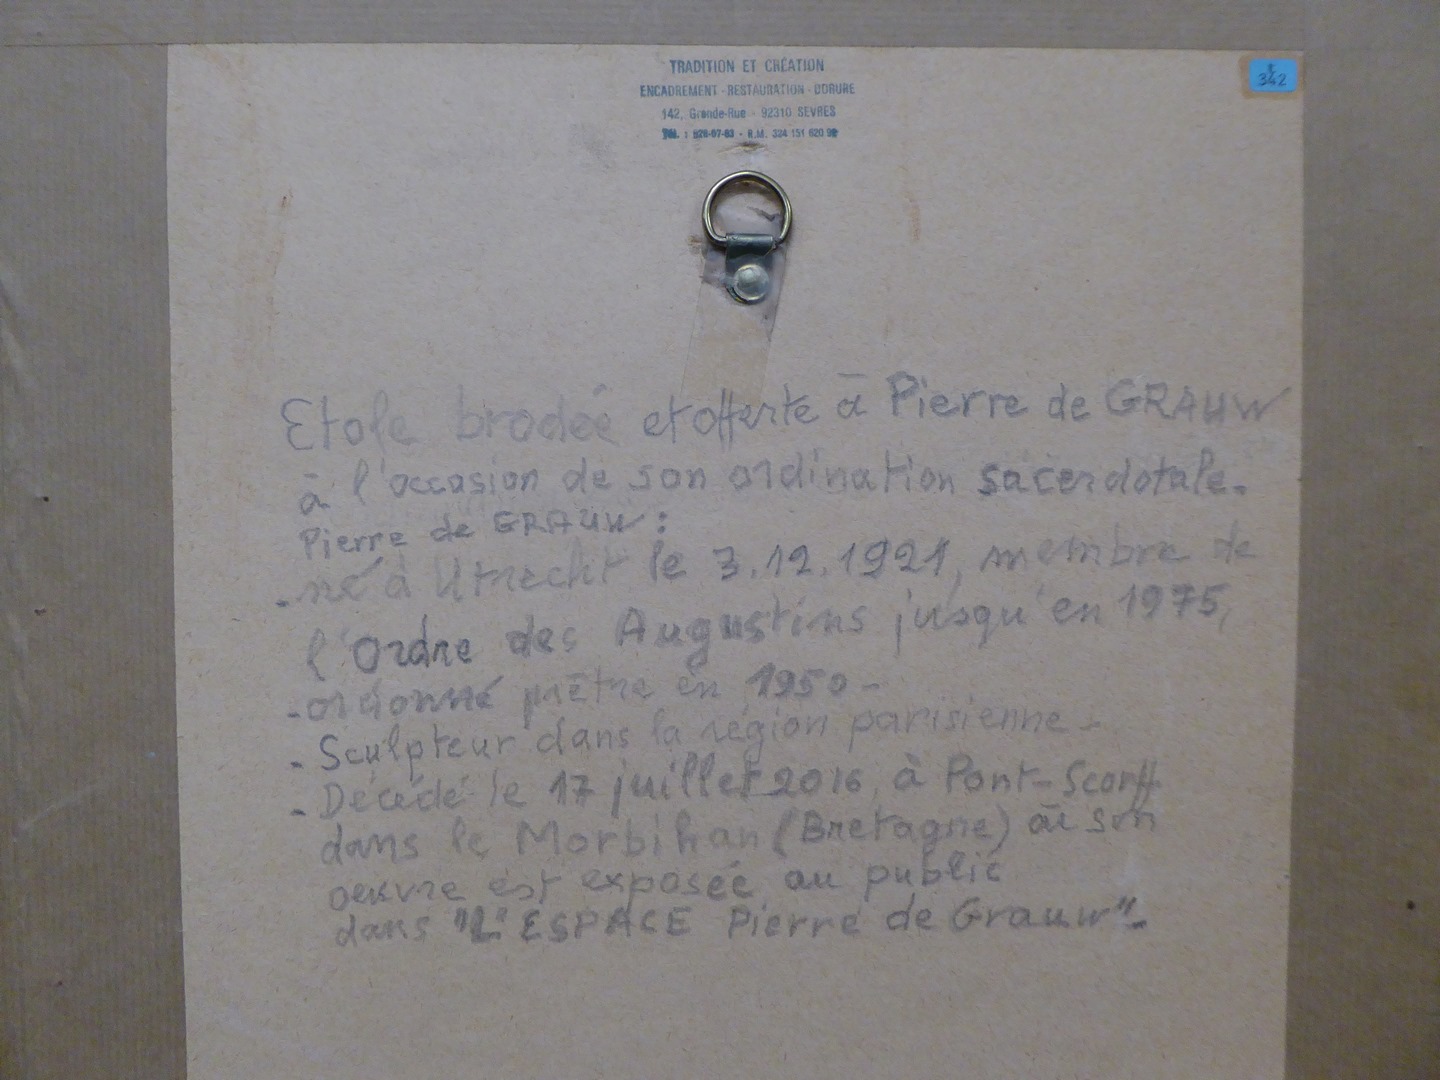 TRADITION ET CRÉATION
ENCADREMENT - RESTAURATION - DORURE
142, Grande-Rue - 92310 SEVRES
Tél. : 626-07-83 - R.M. 324 151 620 92
342
Etole brodée et offerte à Pierre de GRAUW
à l'occasion de son ordination sacerdotale.
Pierre de GRAUW :
- né à Utrecht le 3.12.1921, membre de
l'Ordre des Augustins jusqu'en 1975,
- ordonné prêtre en 1950 -
- Sculpteur dans la région parisienne -
- Décédé le 17 juillet 2016, à Pont-Scorff
dans le Morbihan (Bretagne) où son
oeuvre est exposée au public
dans "L'ESPACE Pierre de Grauw".